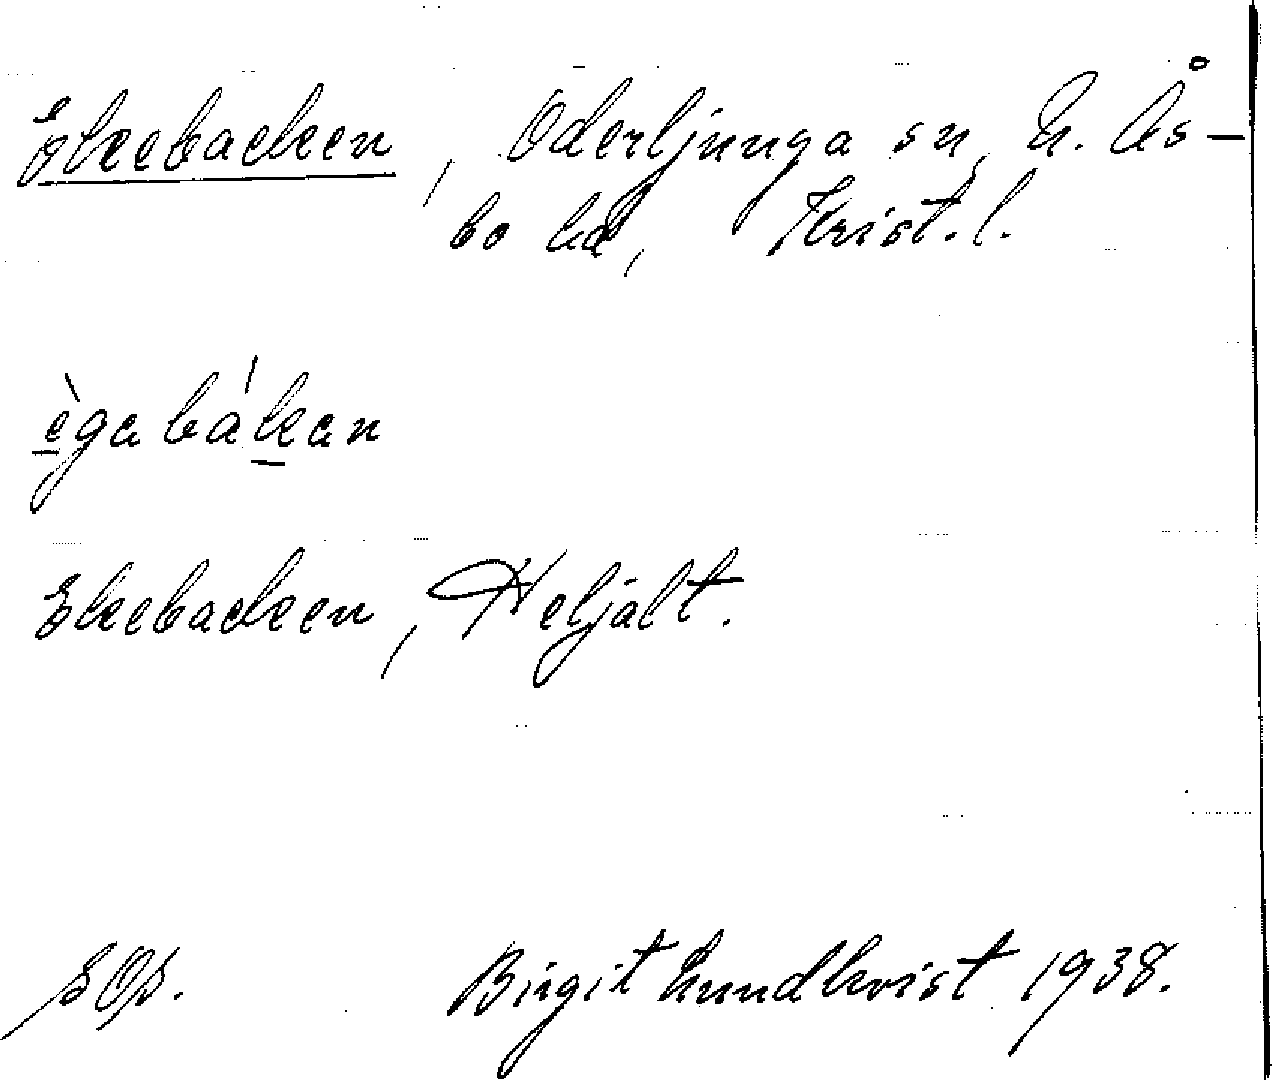 Ekebacken, Oderljunga sn, N. Ås-
bo hd, Krist. l.
ègabákan
Ekebacken, Heljalt.
Birgit Lundkvist 1938.